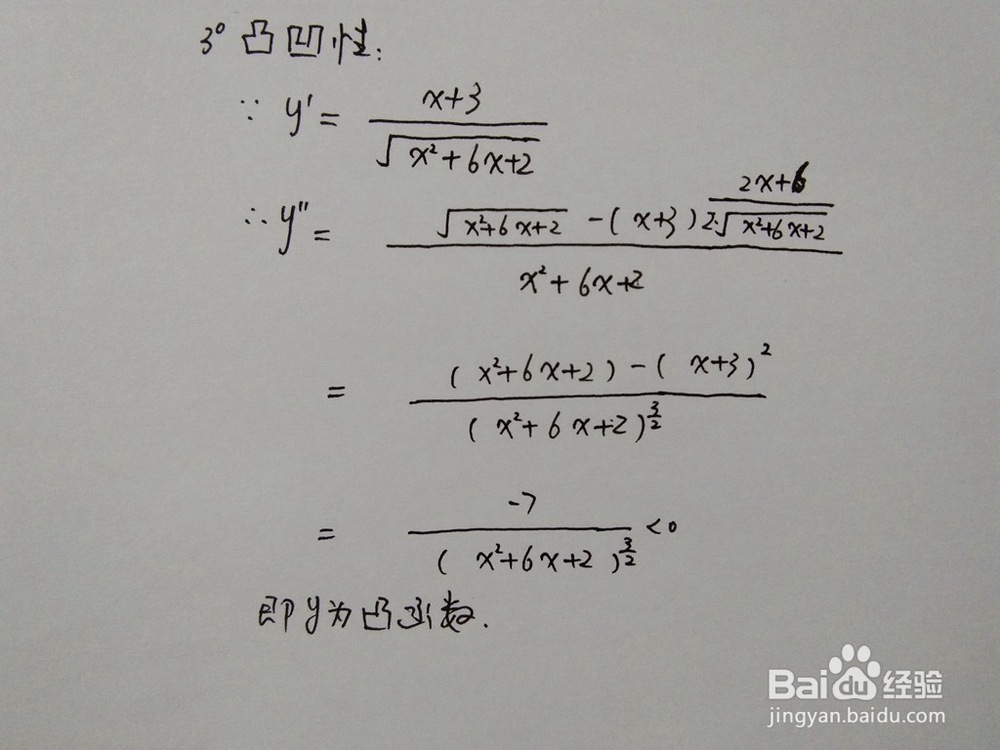 3° 凸凹性:
∵ y' = (x+3)/√(x²+6x+2)
∴ y'' = (√(x²+6x+2) - (x+3) (2x+6)/(2·√(x²+6x+2)))/(x²+6x+2)
= ((x²+6x+2)-(x+3)²)/(x²+6x+2)^(3/2)
= -7/(x²+6x+2)^(3/2) <0
即y为凸函数.
Baidu 经验
jingyan.baidu.com